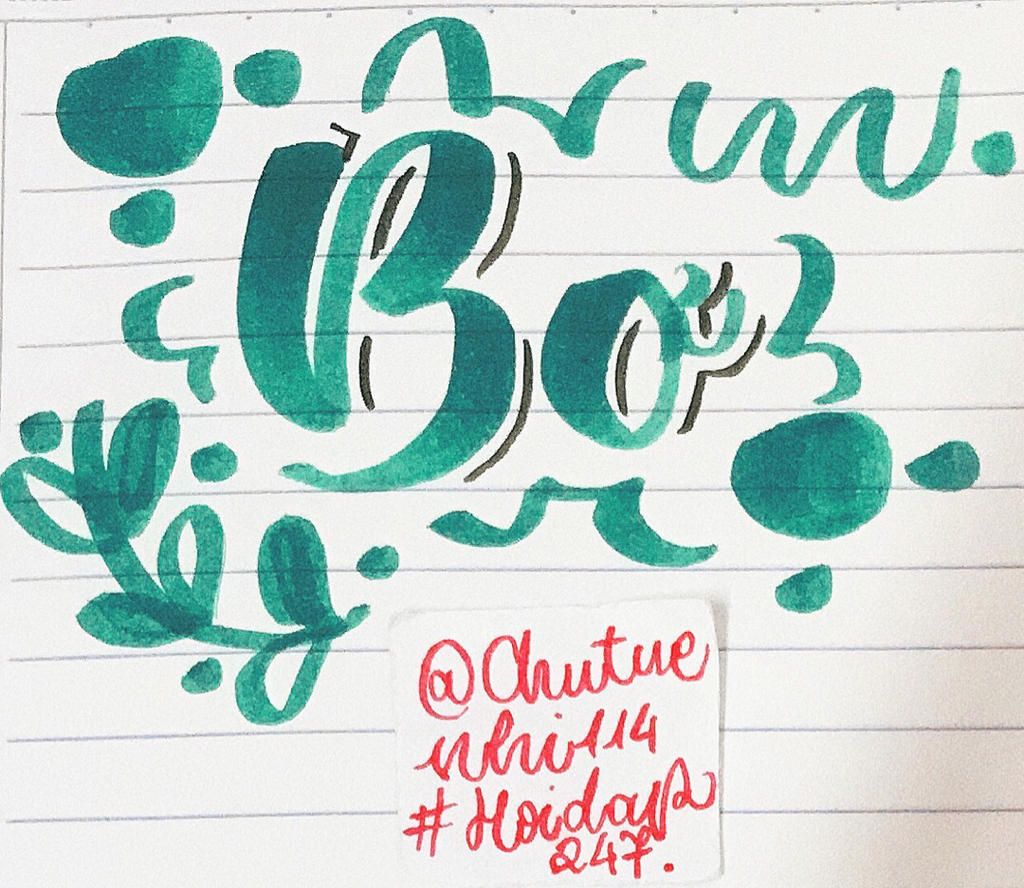 Bơ
@Chutue
nhi114
#Hoidap
247.